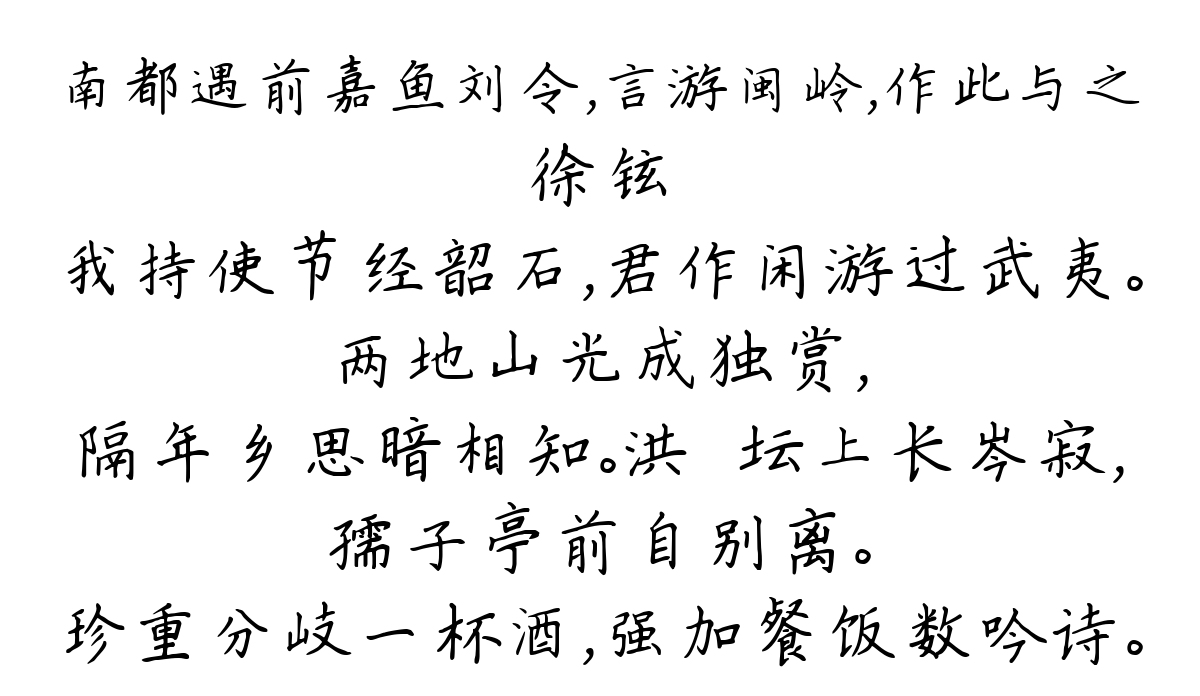 南都遇前嘉鱼刘令,言游闽岭,作此与之
徐铉
我持使节经韶石,君作闲游过武夷。
两地山光成独赏,
隔年乡思暗相知。洪 坛上长岑寂,
孺子亭前自别离。
珍重分歧一杯酒,强加餐饭数吟诗。